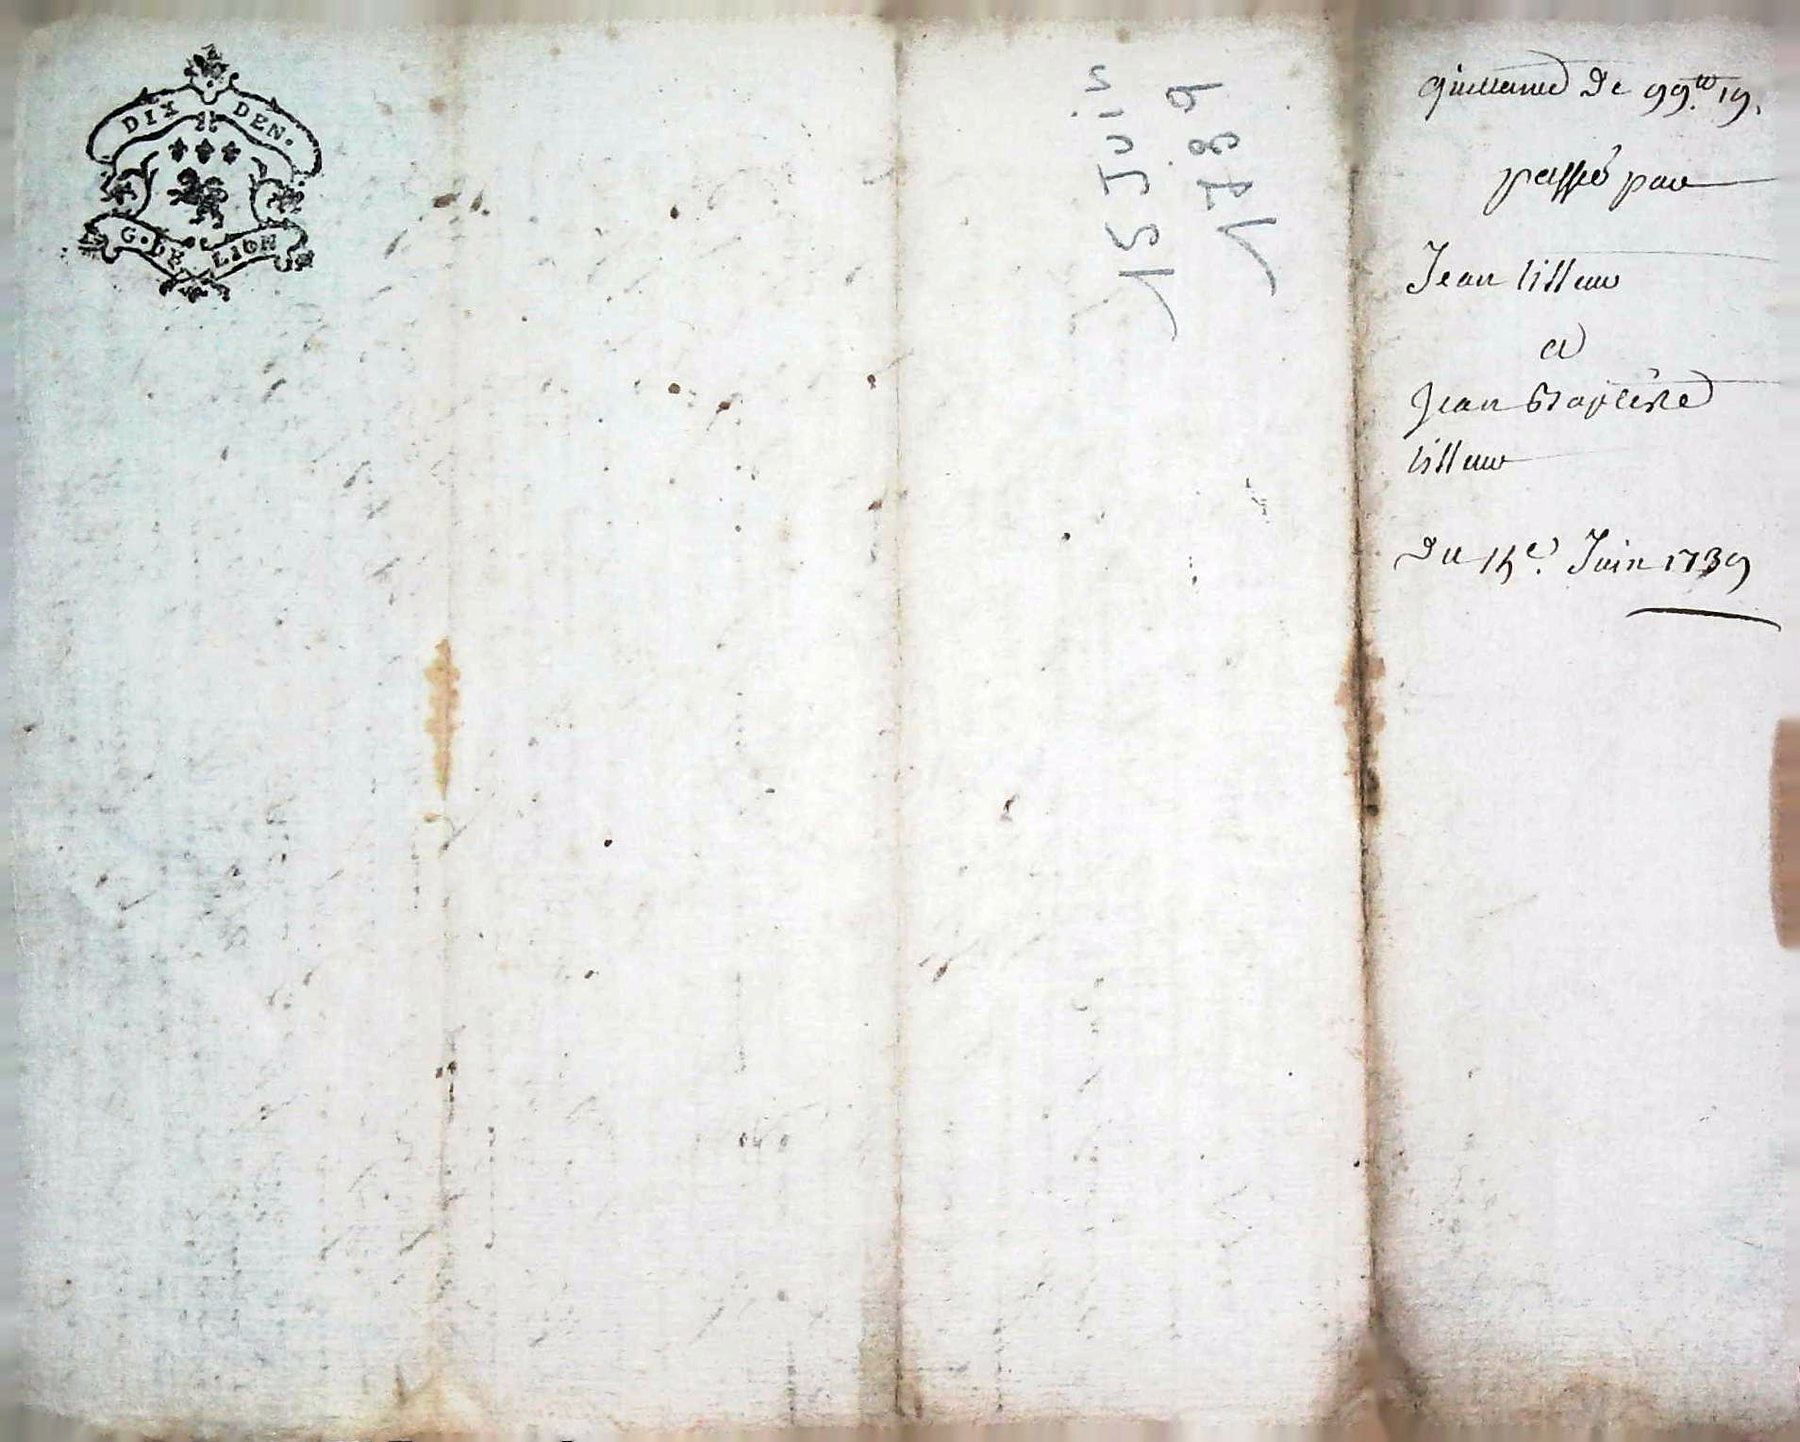 DIX DEN.
G. DE LION
15 Juin
1789
quittance De 99.tt 19.
passée par
Jean tisseur
a
Jean Baptiste
tisseur
Du 15e. Juin 1789